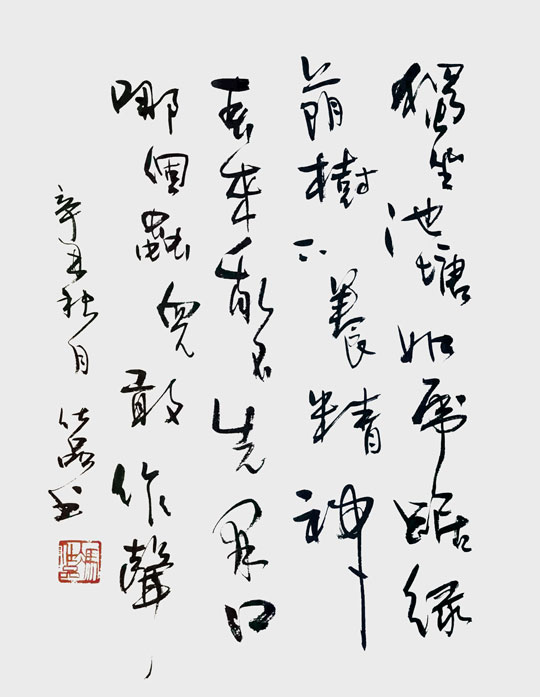 獨坐池塘如虎踞綠
荫樹下養精神
春來我不先開口
哪個蟲兒敢作聲
辛丑秋月 仕 书